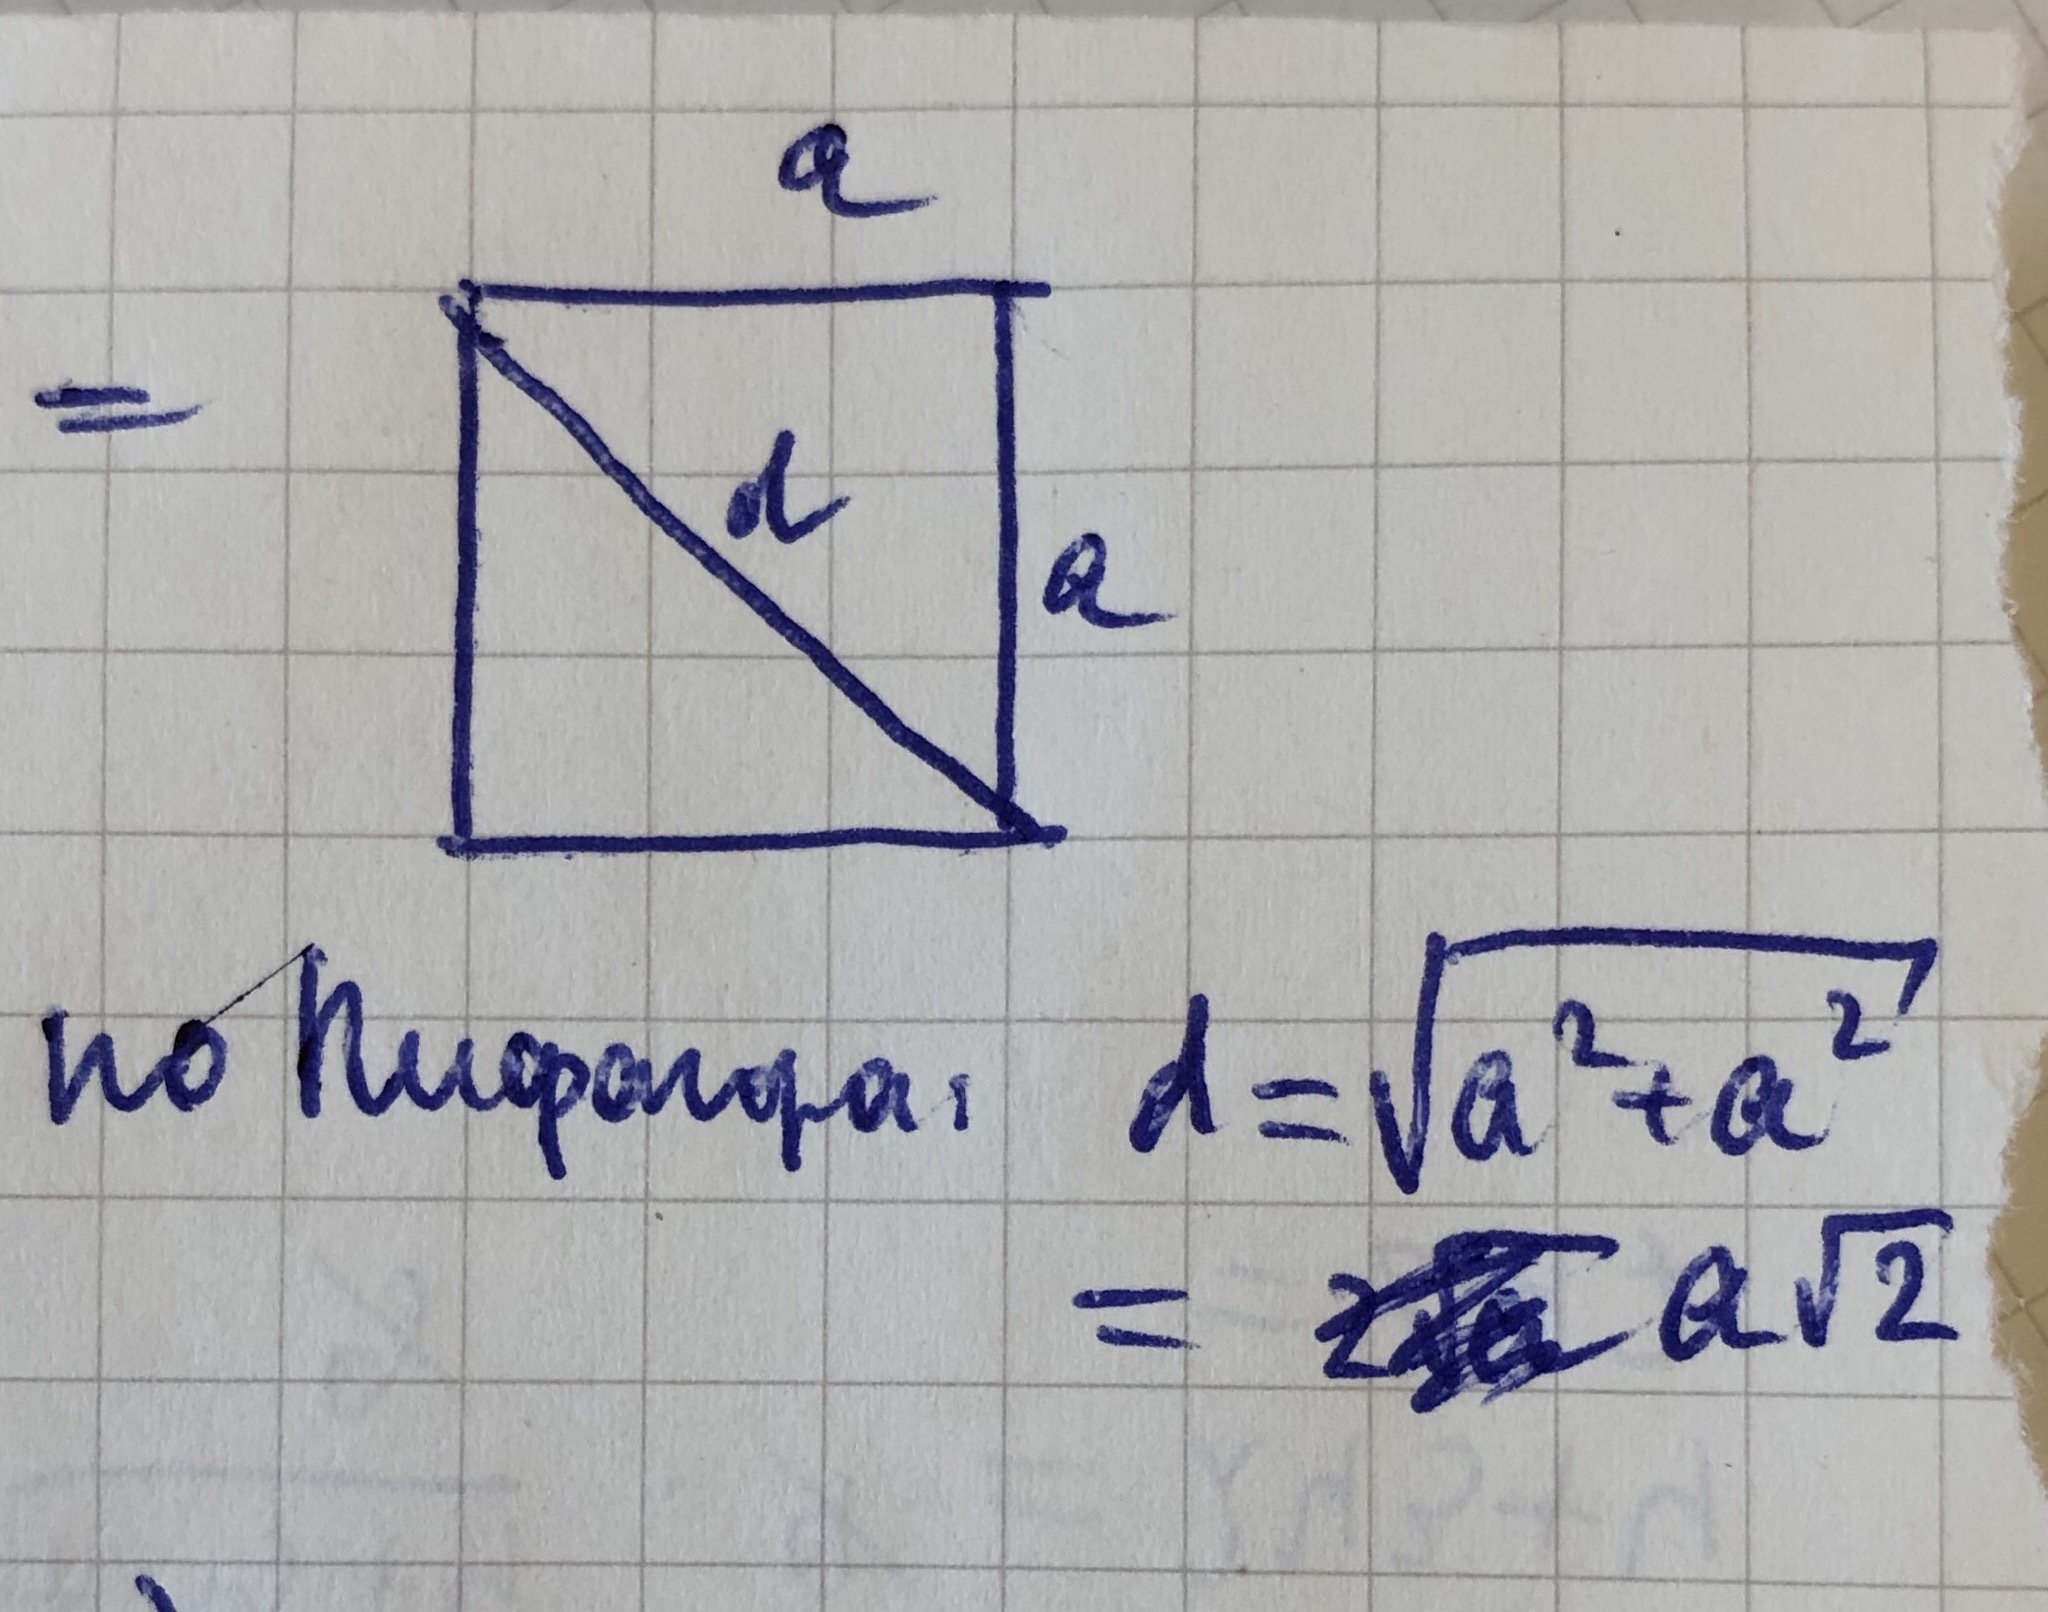 a
=
d
a
по Пифагора, d = √a²+a²
= a√2